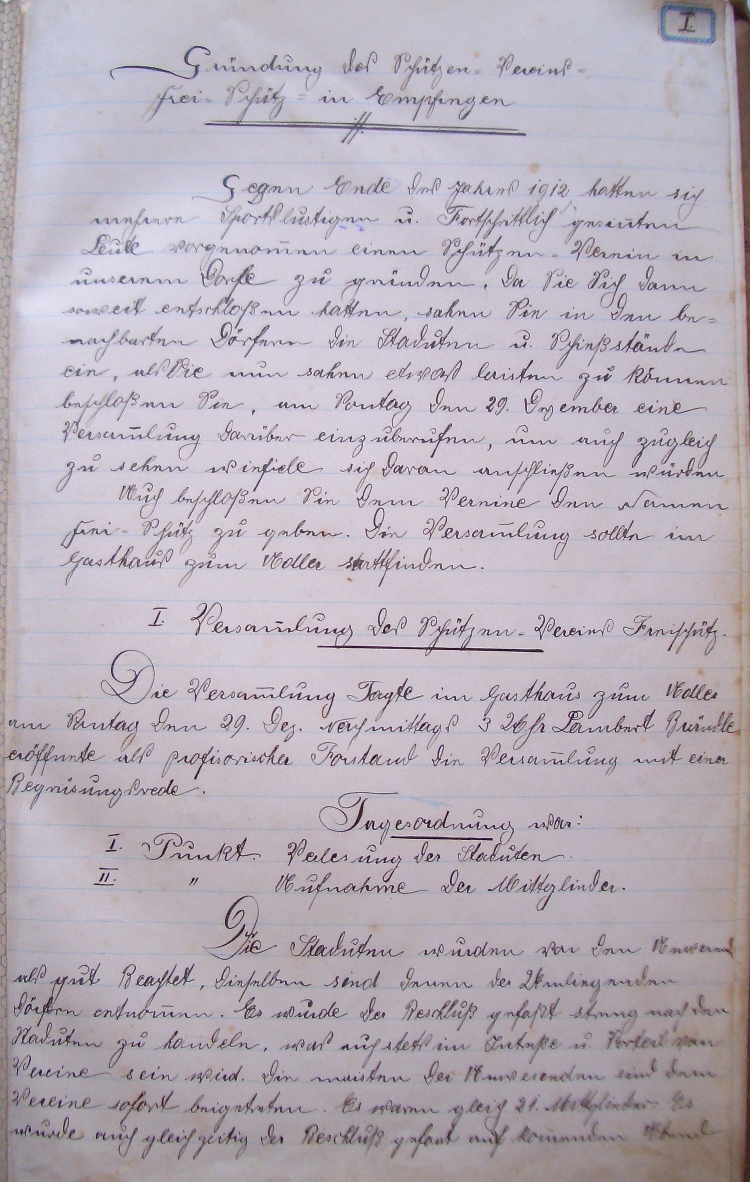 I.
Gründung des Schützen-Vereins-
Frei-Schütz = in Empfingen
Gegen Ende des Jahres 1912, hatten sich
mehrere Sportslustigen u. Fortschrittlich gesin̄ten
Leute vorgenom̄en einen Schützen-Verein in
unserem Dorfe zu gründen. Da Sie Sich dann
soweit entschloßen hatten, sahen Sie in den be=
nachbarten Dörfern die Staduten u. Schießstände
ein, als Sie nun sahen etwas leisten zu können
beschloßen Sie, am Sontag den 29. Dezember eine
Versam̄lung darüber einzuberufen, um auch zugleich
zu sehen wiefiele sich daran anschließen würden
Auch beschloßen Sie dem Vereine den Namen
Frei-Schütz zu geben. Die Versam̄lung sollte im
Gasthaus zum Adler stattfinden.
I. Versam̄lung des Schützen-Vereins Freischütz.
Die Versam̄lung Tagte im Gasthaus zum Adler
am Sontag den 29. Dez. Nachmittags 3 Uhr Lambert Brändle
eröffnete als profisorischer Forstand die Versam̄lung mit einer
Begrüsungsrede.
Tagesordnung war:
I. Punkt. Verlesung der Staduten.
II. " Aufnahme der Mittglieder.
Die Staduten wurden von den Anwesend
als gut Beachtet, dieselben sind denen der Umliegenden
Dörfern entnom̄en. Es wurde der Beschluß gefaßt streng nach den
Staduten zu handeln, was auch stets im Intreße u. Vorteil vom
Vereine sein wird. Die meisten der Anwesenden sind dem
Vereine sofort beigetreten. Es waren gleich 21. Mittglieder. Es
wurde auch gleichzeitig der Beschluß gefast auf kom̄enden Abend